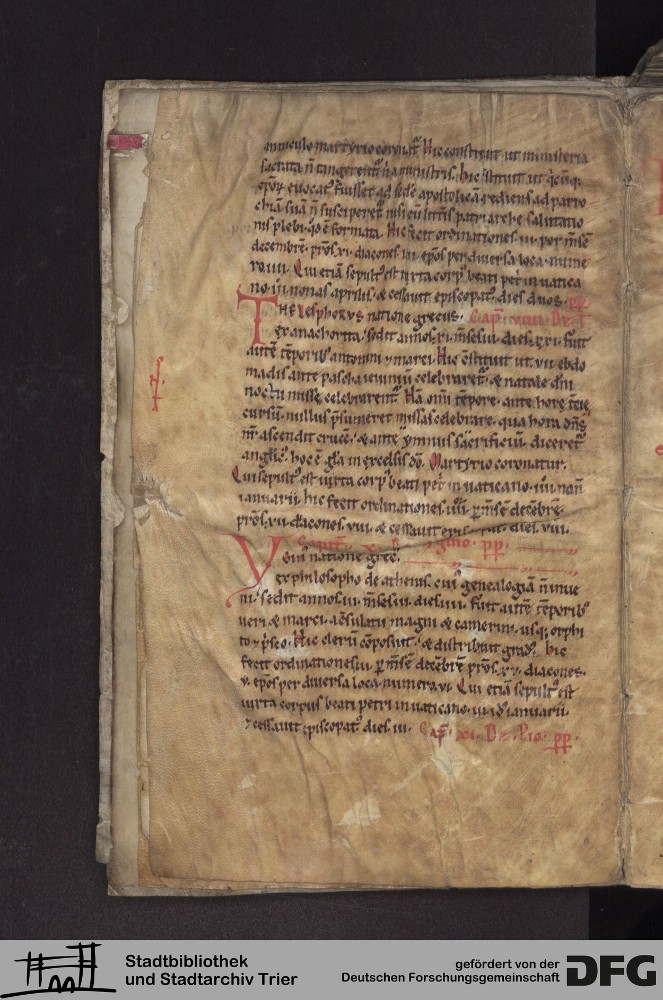 nunculo martyrio coronat᷑. Hic constituit ut ministeria
sacrata n̄ tangerent᷑ n̄ a ministris. hic ꝯstituit ut q̄cūq;
ep̄oꝝ euocat᷒ fuisset ad sedē apostolicā ⁊ rediens ad patro
chiā suā n̄ susciperet᷑ nisi cū litt̄is patriarche salutatio
nis plebi. qđ ē formata. Hic fecit ordinationes .iii. per m̄sē
decembrē. pr̄os .xi. diacones .iii. ep̄os per diuersa loca nume
ro .iiii. Qui etiā sepult᷒ est iuxta corp᷒ beati petri in uatica
no .iii. nonas aprilis. & cessauit episcopat᷒ dies duos. pp̄.
Thelesphorus natione grecus. Cap̄. viiii. De T.
ex anachorita. sedit annos .xi. m̄ses .iii. dies .xxi. fuit
autē tēporib᷒ antonini ⁊ marci. Hic ꝯstituit ut .vii. ebdo
madis ante pascha ieiuniū celebraret᷑. & natale dn̄i
noctu misse celebrarent᷑. Nā om̄i tēpore. ante hore tercie
cursū. nullus p̄sumeret missas celebrare. qua hora dn̄s
nr̄ ascendit crucē. & ante ymnus sacrificiū diceret᷑
anglic᷒. hoc ē gl̄a in excelsis dō. Martyrio coronatur.
Qui sepult᷒ est iuxta corp᷒ beati petri in uaticano .iiii. non̄
ianuarii. hic fecit ordinationes .iiii. ꝑ m̄sē decēbrē.
pr̄os .xii. diacones .viii. & cessauit epis dies .viii.
Cap̄ gino. pp̄.
Ygin᷒ natione grec᷒.
ex philosopho de athenis. cui᷒ genealogiā n̄ inue
ni. sedit annos .iii. m̄ses .iii. dies .iiii. fuit autē tēporib᷒
ueri & marci. a ꝯsulatu magni & camerini. usq; orphi
to ⁊ p̄sco. Hic clerū cōposuit. & distribuit grad᷒. hic
fecit ordinationes .iii. ꝑ m̄sē decēbrē pr̄os .xv. diacones.
v. ep̄os per diuersa loca numero .vi. Qui etiā sepult᷒ est
iuxta corpus beati petri in uaticano .iii. id᷒ ianuarii.
⁊ cessauit episcopat᷒ dies .iii. Cap̄. xi. De Pio. pp̄.
Stadtbibliothek
und Stadtarchiv Trier
gefördert von der
Deutschen Forschungsgemeinschaft
DFG